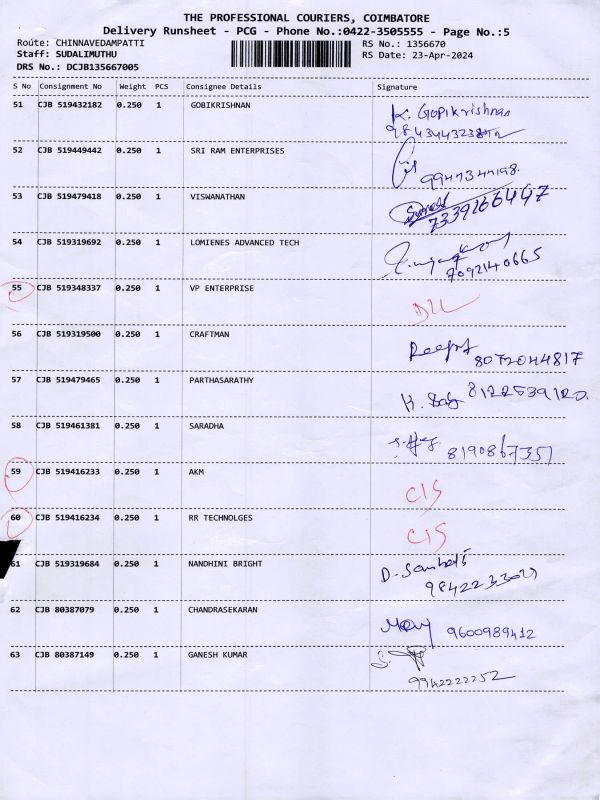 THE PROFESSIONAL COURIERS, COIMBATORE
Delivery Runsheet - PCG - Phone No.:0422-3505555 - Page No.:5
Route: CHINNAVEDAMPATTI
RS No.: 1356670
Staff: SUDALIMUTHU
RS Date: 23-Apr-2024
DRS No.: DCJB135667005
S No Consignment No Weight PCS Consignee Details Signature
51 CJB 519432182 0.250 1 GOBIKRISHNAN K. Gopikrishnan
52 CJB 519449442 0.250 1 SRI RAM ENTERPRISES
53 CJB 519479418 0.250 1 VISWANATHAN
7339266447
54 CJB 519319692 0.250 1 LOMIENES ADVANCED TECH
7092140665
55 CJB 519348337 0.250 1 VP ENTERPRISE
D2L
56 CJB 519319500 0.250 1 CRAFTMAN
8072044817
57 CJB 519479465 0.250 1 PARTHASARATHY
8122539120.
58 CJB 519461381 0.250 1 SARADHA
8190867351
59 CJB 519416233 0.250 1 AKM
C/S
60 CJB 519416234 0.250 1 RR TECHNOLGES
C/S
61 CJB 519319684 0.250 1 NANDHINI BRIGHT
62 CJB 80387079 0.250 1 CHANDRASEKARAN
9600989412
63 CJB 80387149 0.250 1 GANESH KUMAR
9942222252